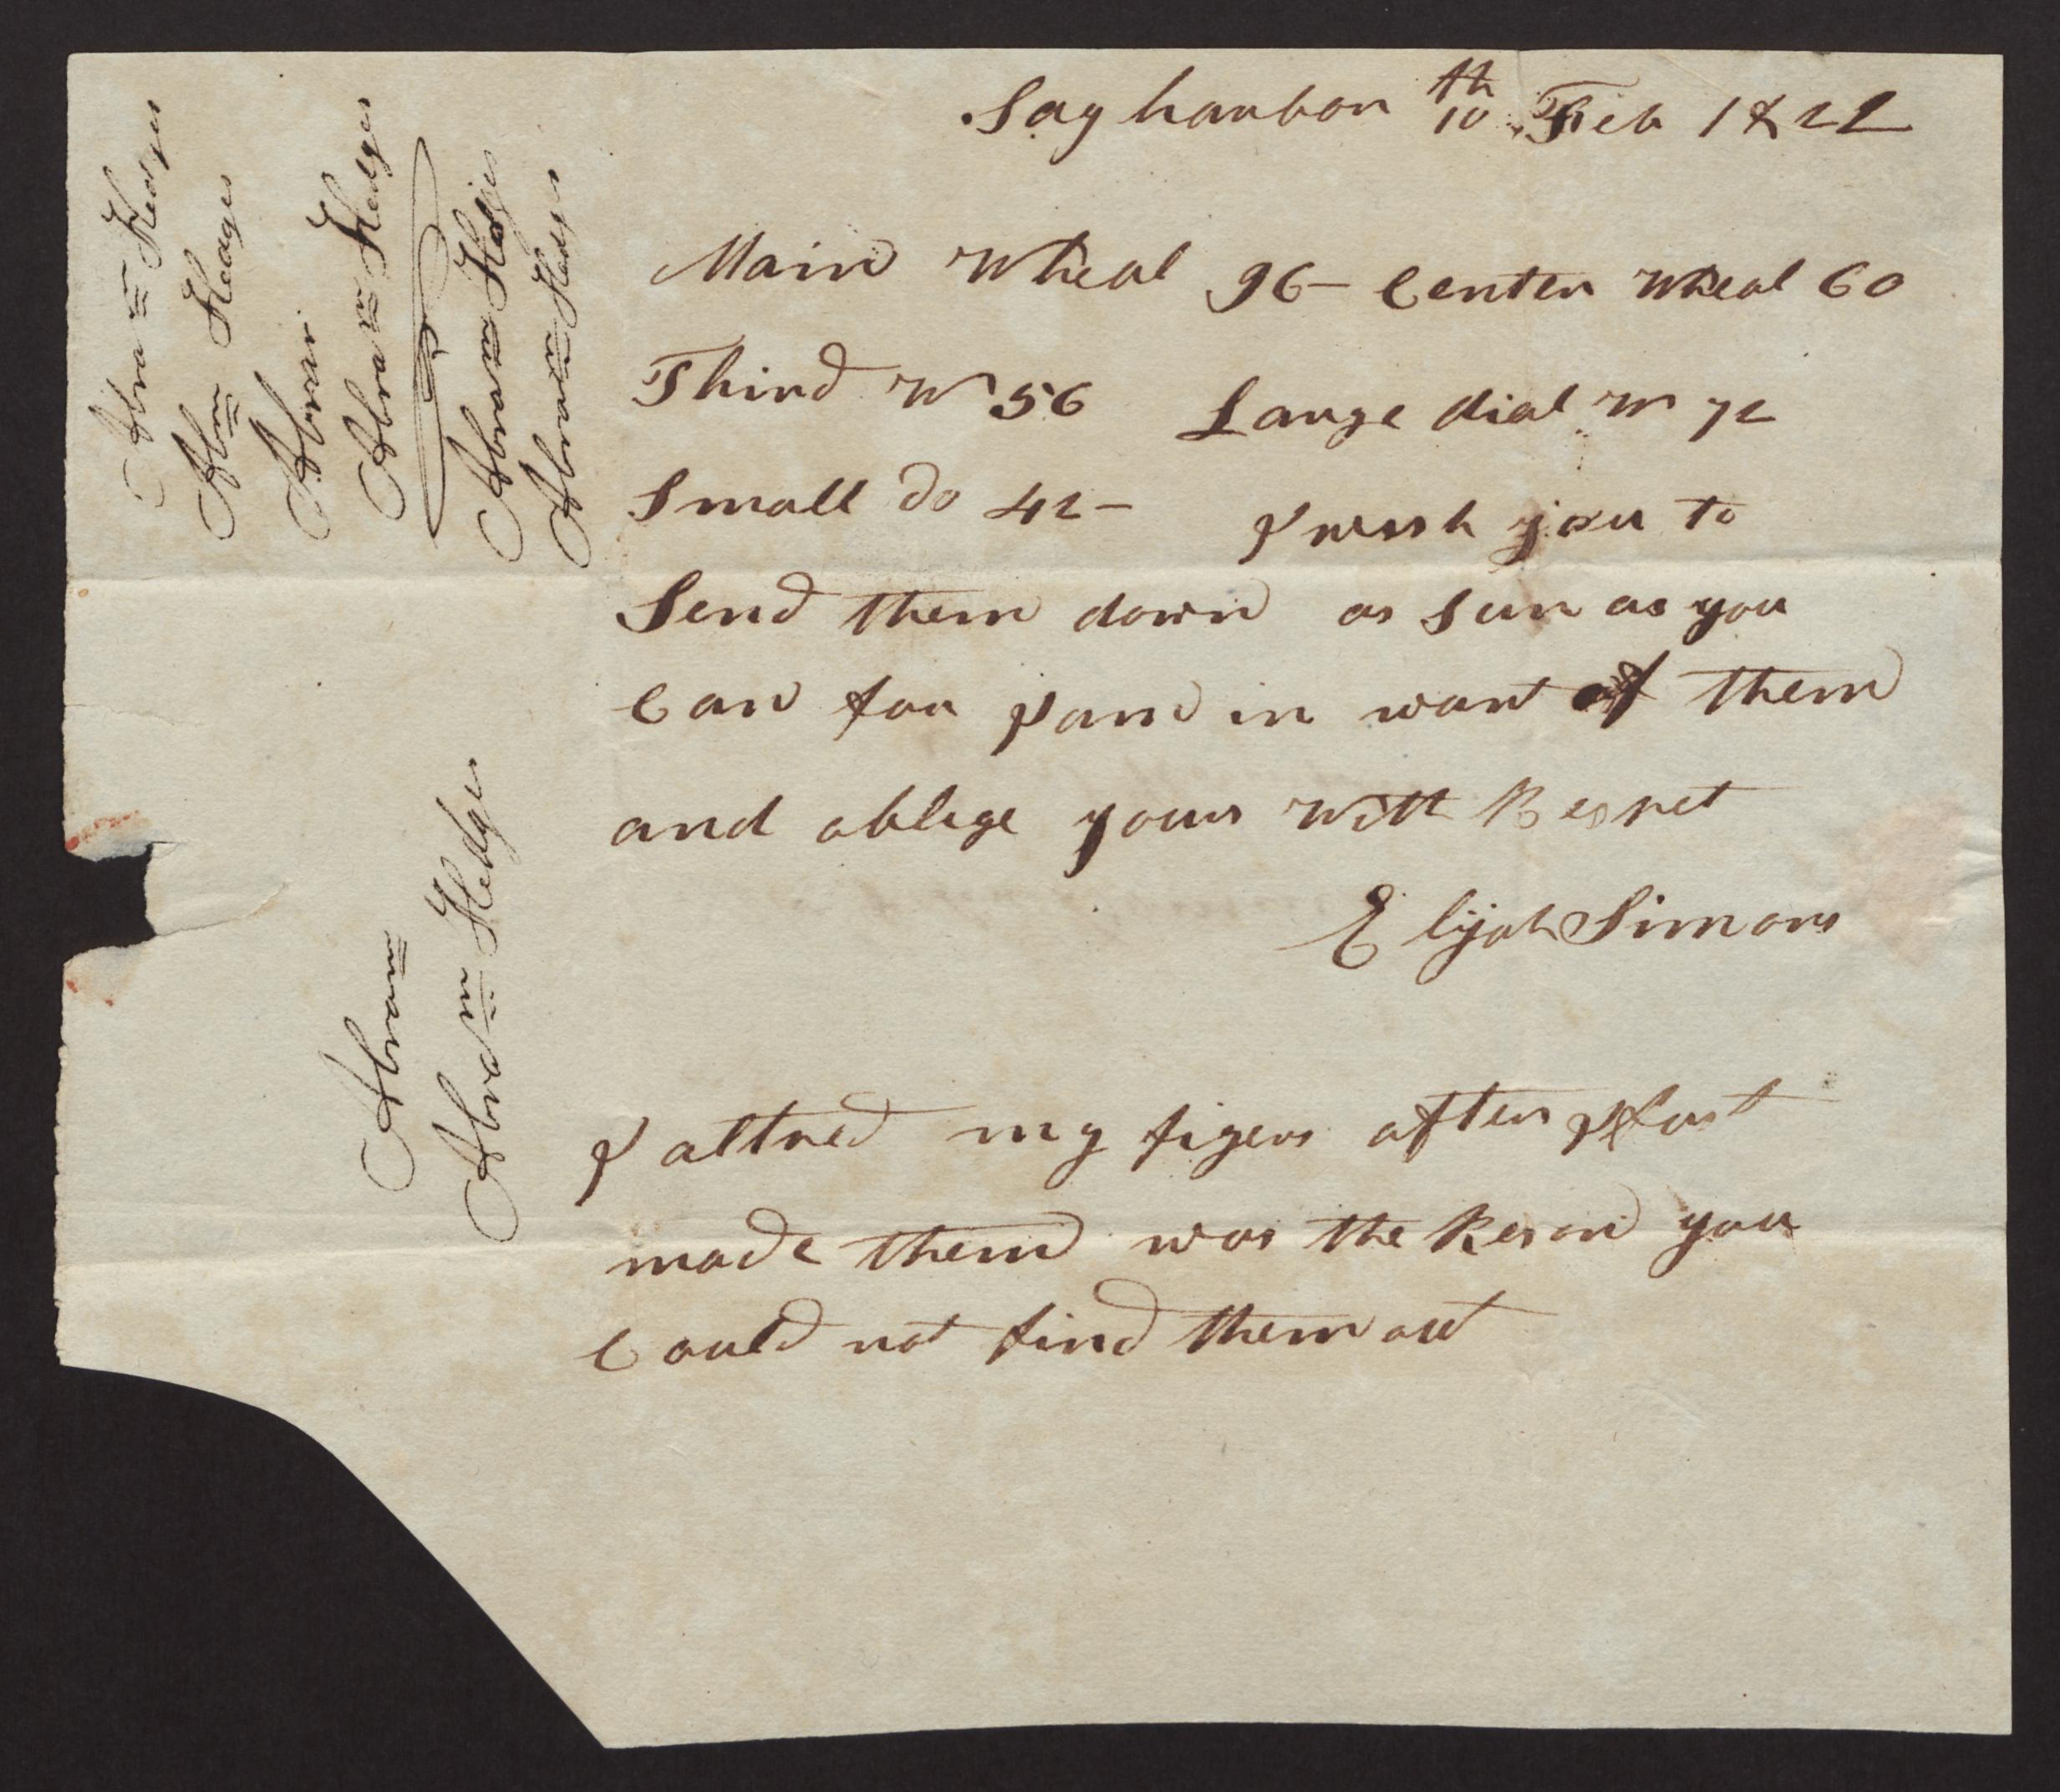 Sag harbor 10th Feb 1822
Main Wheal 96 – Center Wheal 60
Third W 56 Large dial W 72
Small do 42 – I wish you to
Send them down as sun as you
Can for I am in want of them
and oblige yours With Respet
Elijah Simons
I altred my figers after I fust
made them was the Reson you
Could not find them out
Abram Hedges
Abm Hedges
Abram
Abram Hedges
Abram Hedges
Abram Hedges
Abram
Abram Hedges